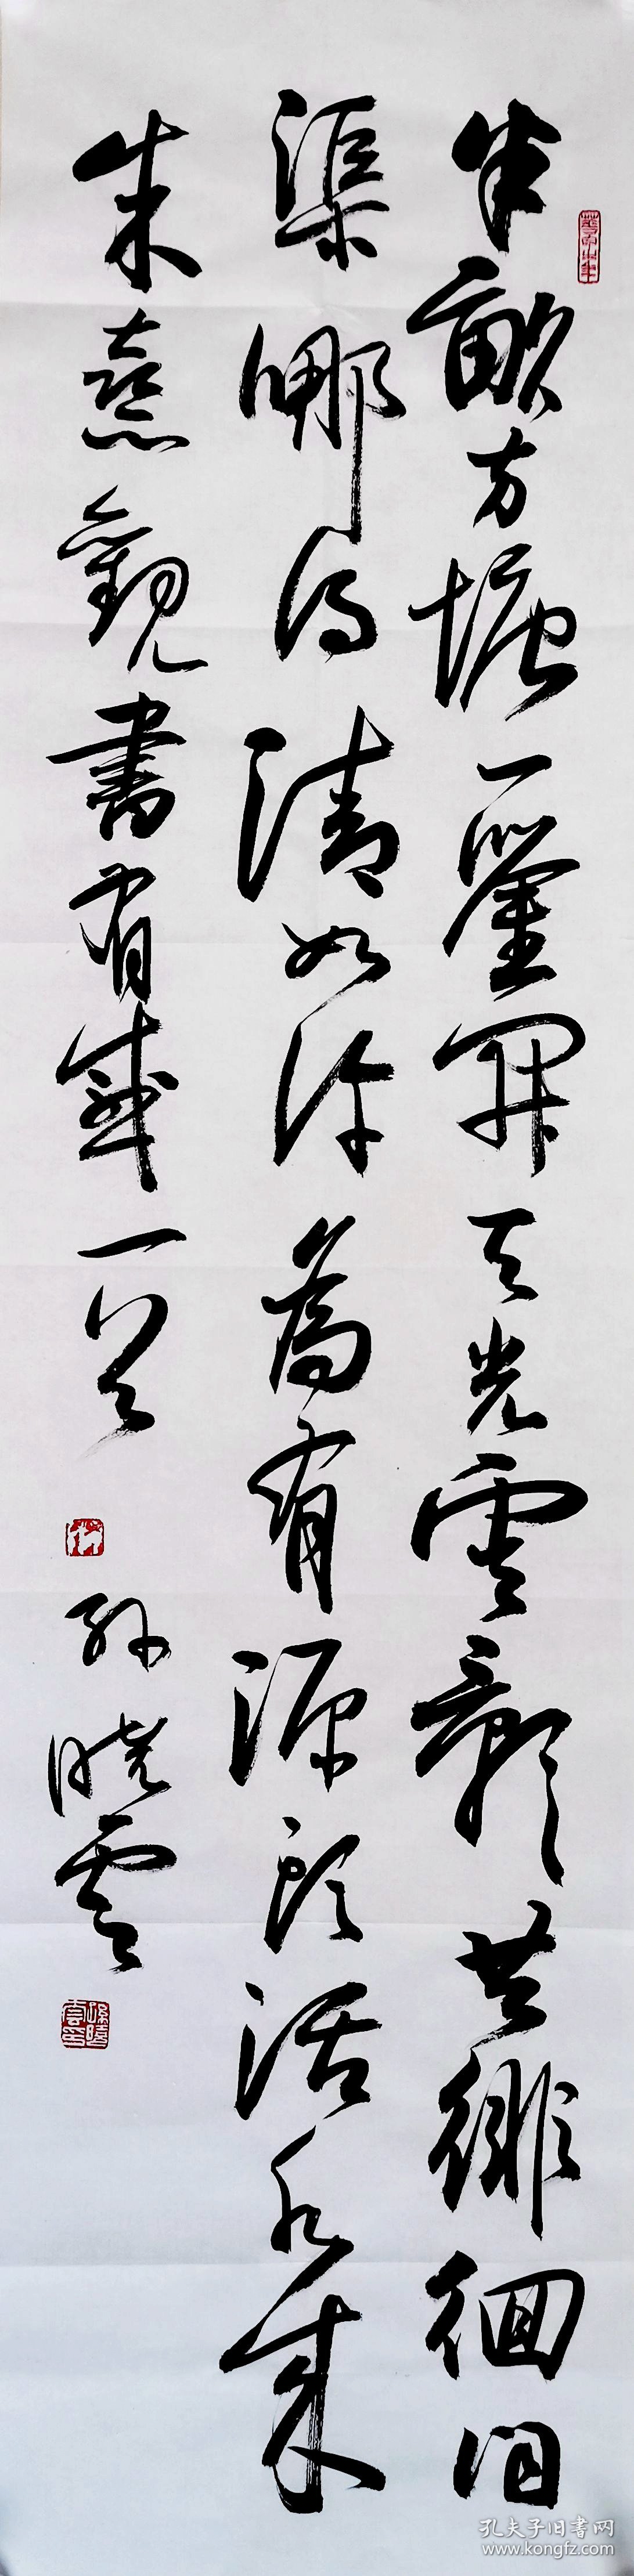 半畝方塘一鑒開天光雲影共徘徊問
渠哪得清如許為有源頭活水來
朱熹觀書有感一首
孫曉雲
孔夫子旧书网
www.kongfz.com